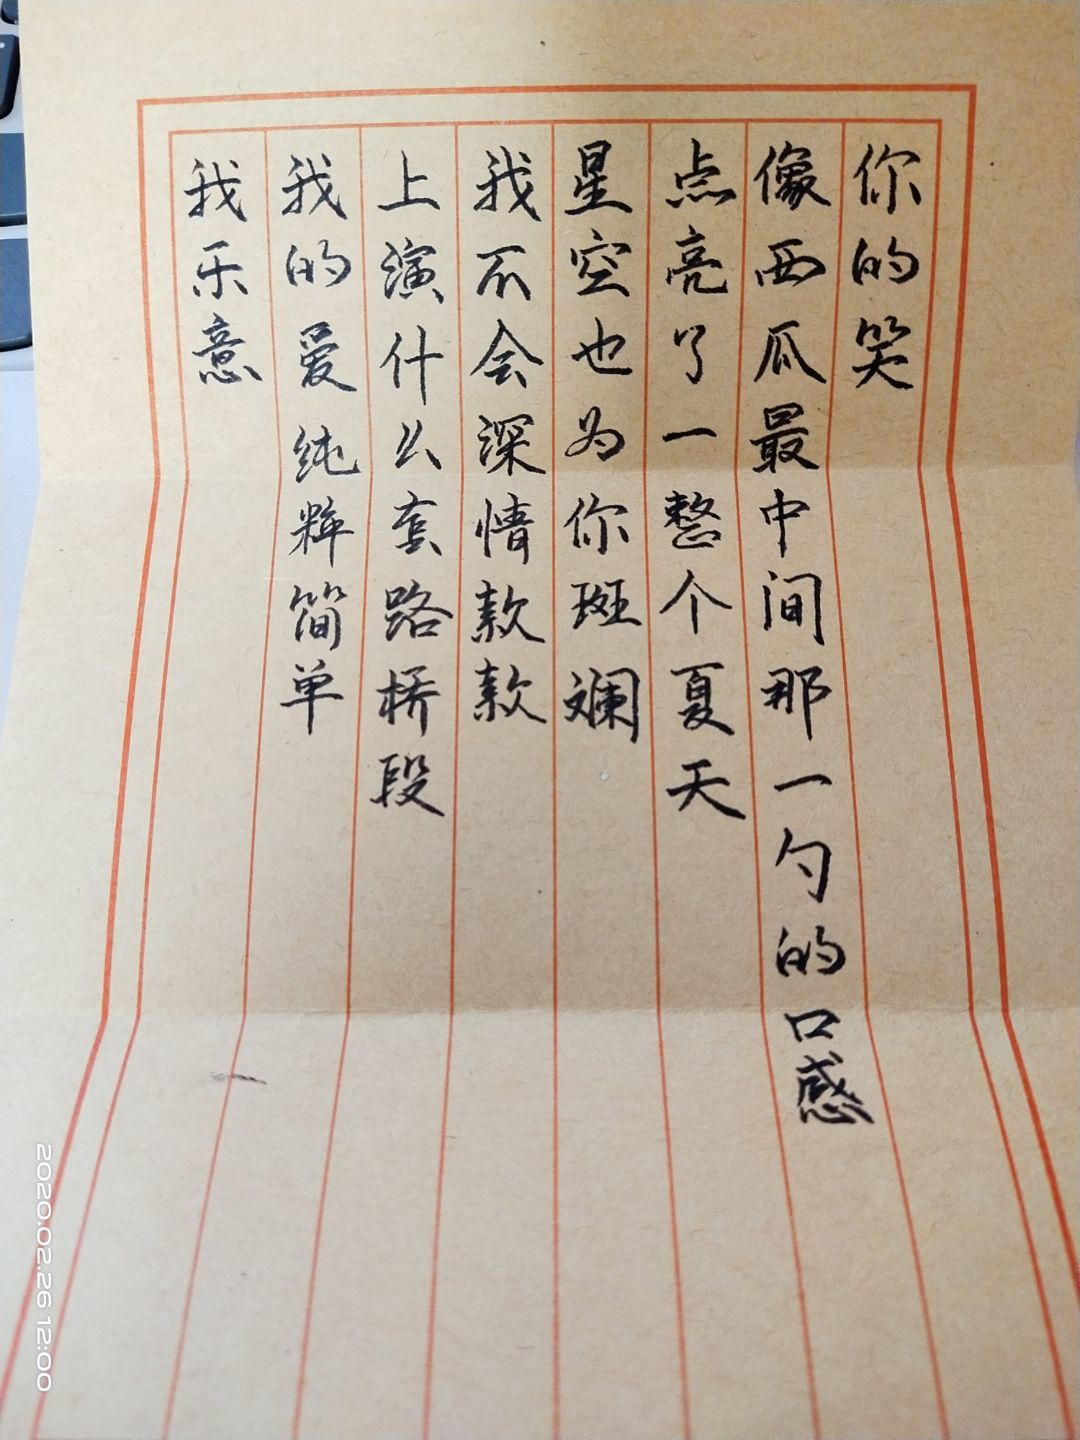 你的笑
像西瓜最中间那一勺的口感
点亮了一整个夏天
星空也为你斑斓
我不会深情款款
上演什么套路桥段
我的爱纯粹简单
我乐意
2020.02.26 12:00